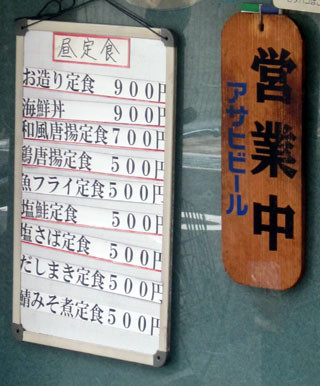 昼定食
お造り定食 900円
海鮮丼 900円
和風唐揚定食700円
鶏唐揚定食 500円
魚フライ定食500円
塩鮭定食 500円
塩さば定食 500円
だしまき定食500円
鯖みそ煮定食500円
営業中
アサヒビール